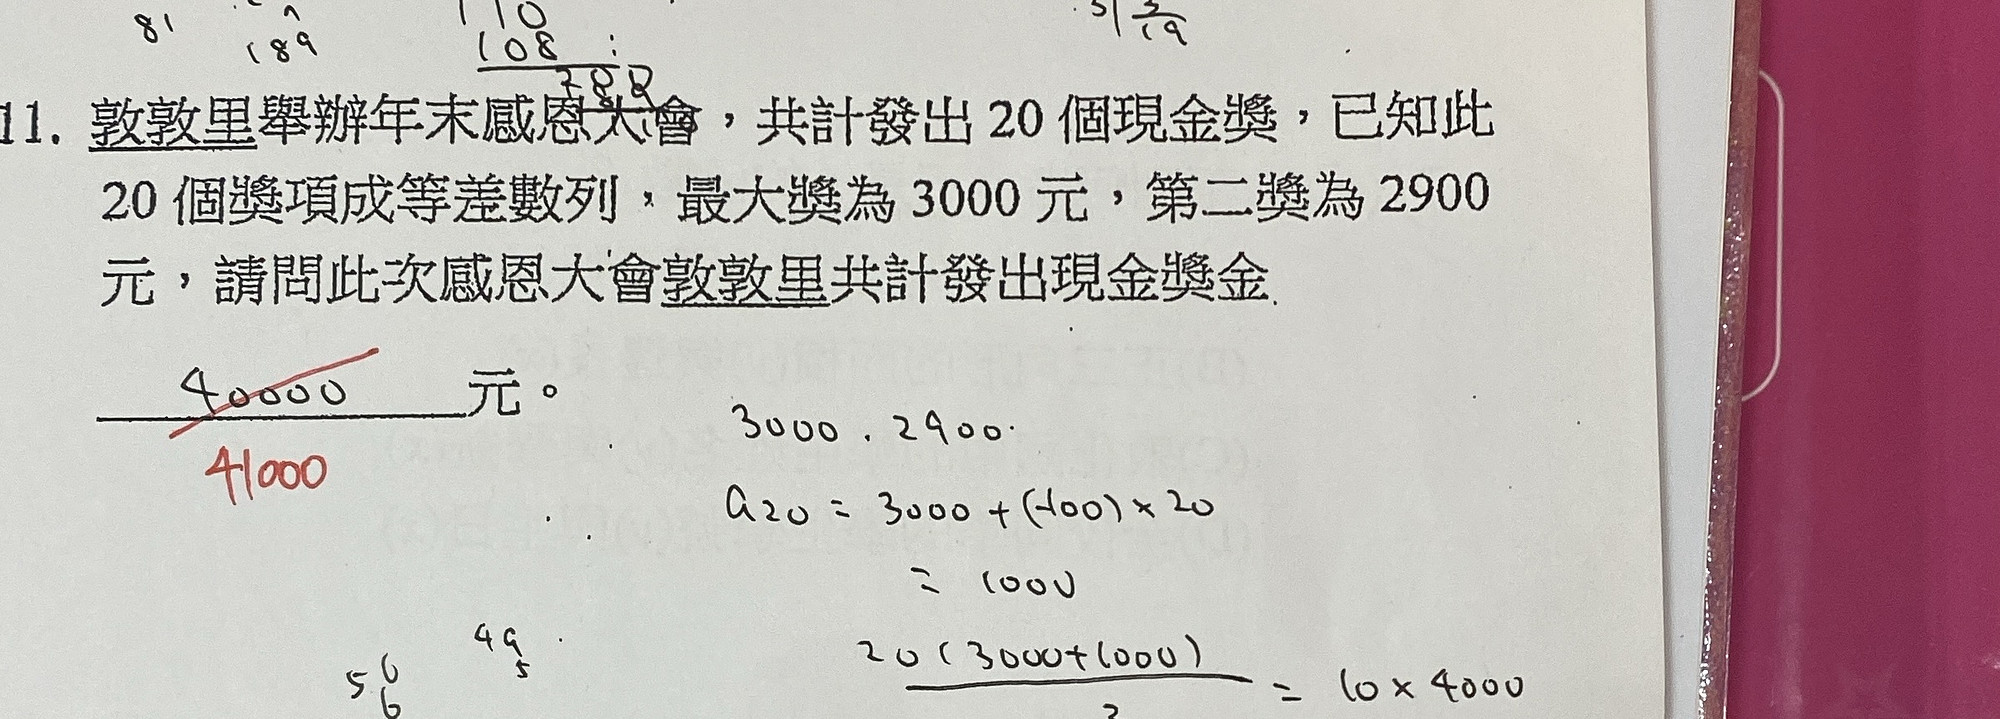 81
189
110
108
200
19
11. 敦敦里舉辦年末感恩大會，共計發出 20 個現金獎，已知此
20 個獎項成等差數列，最大獎為 3000 元，第二獎為 2900
元，請問此次感恩大會敦敦里共計發出現金獎金
40000 元。
41000
3000 . 2900
a20 = 3000 + (-100) × 20
= 1000
20 (3000+1000) = 10 × 4000
2
49
5
5 6
6